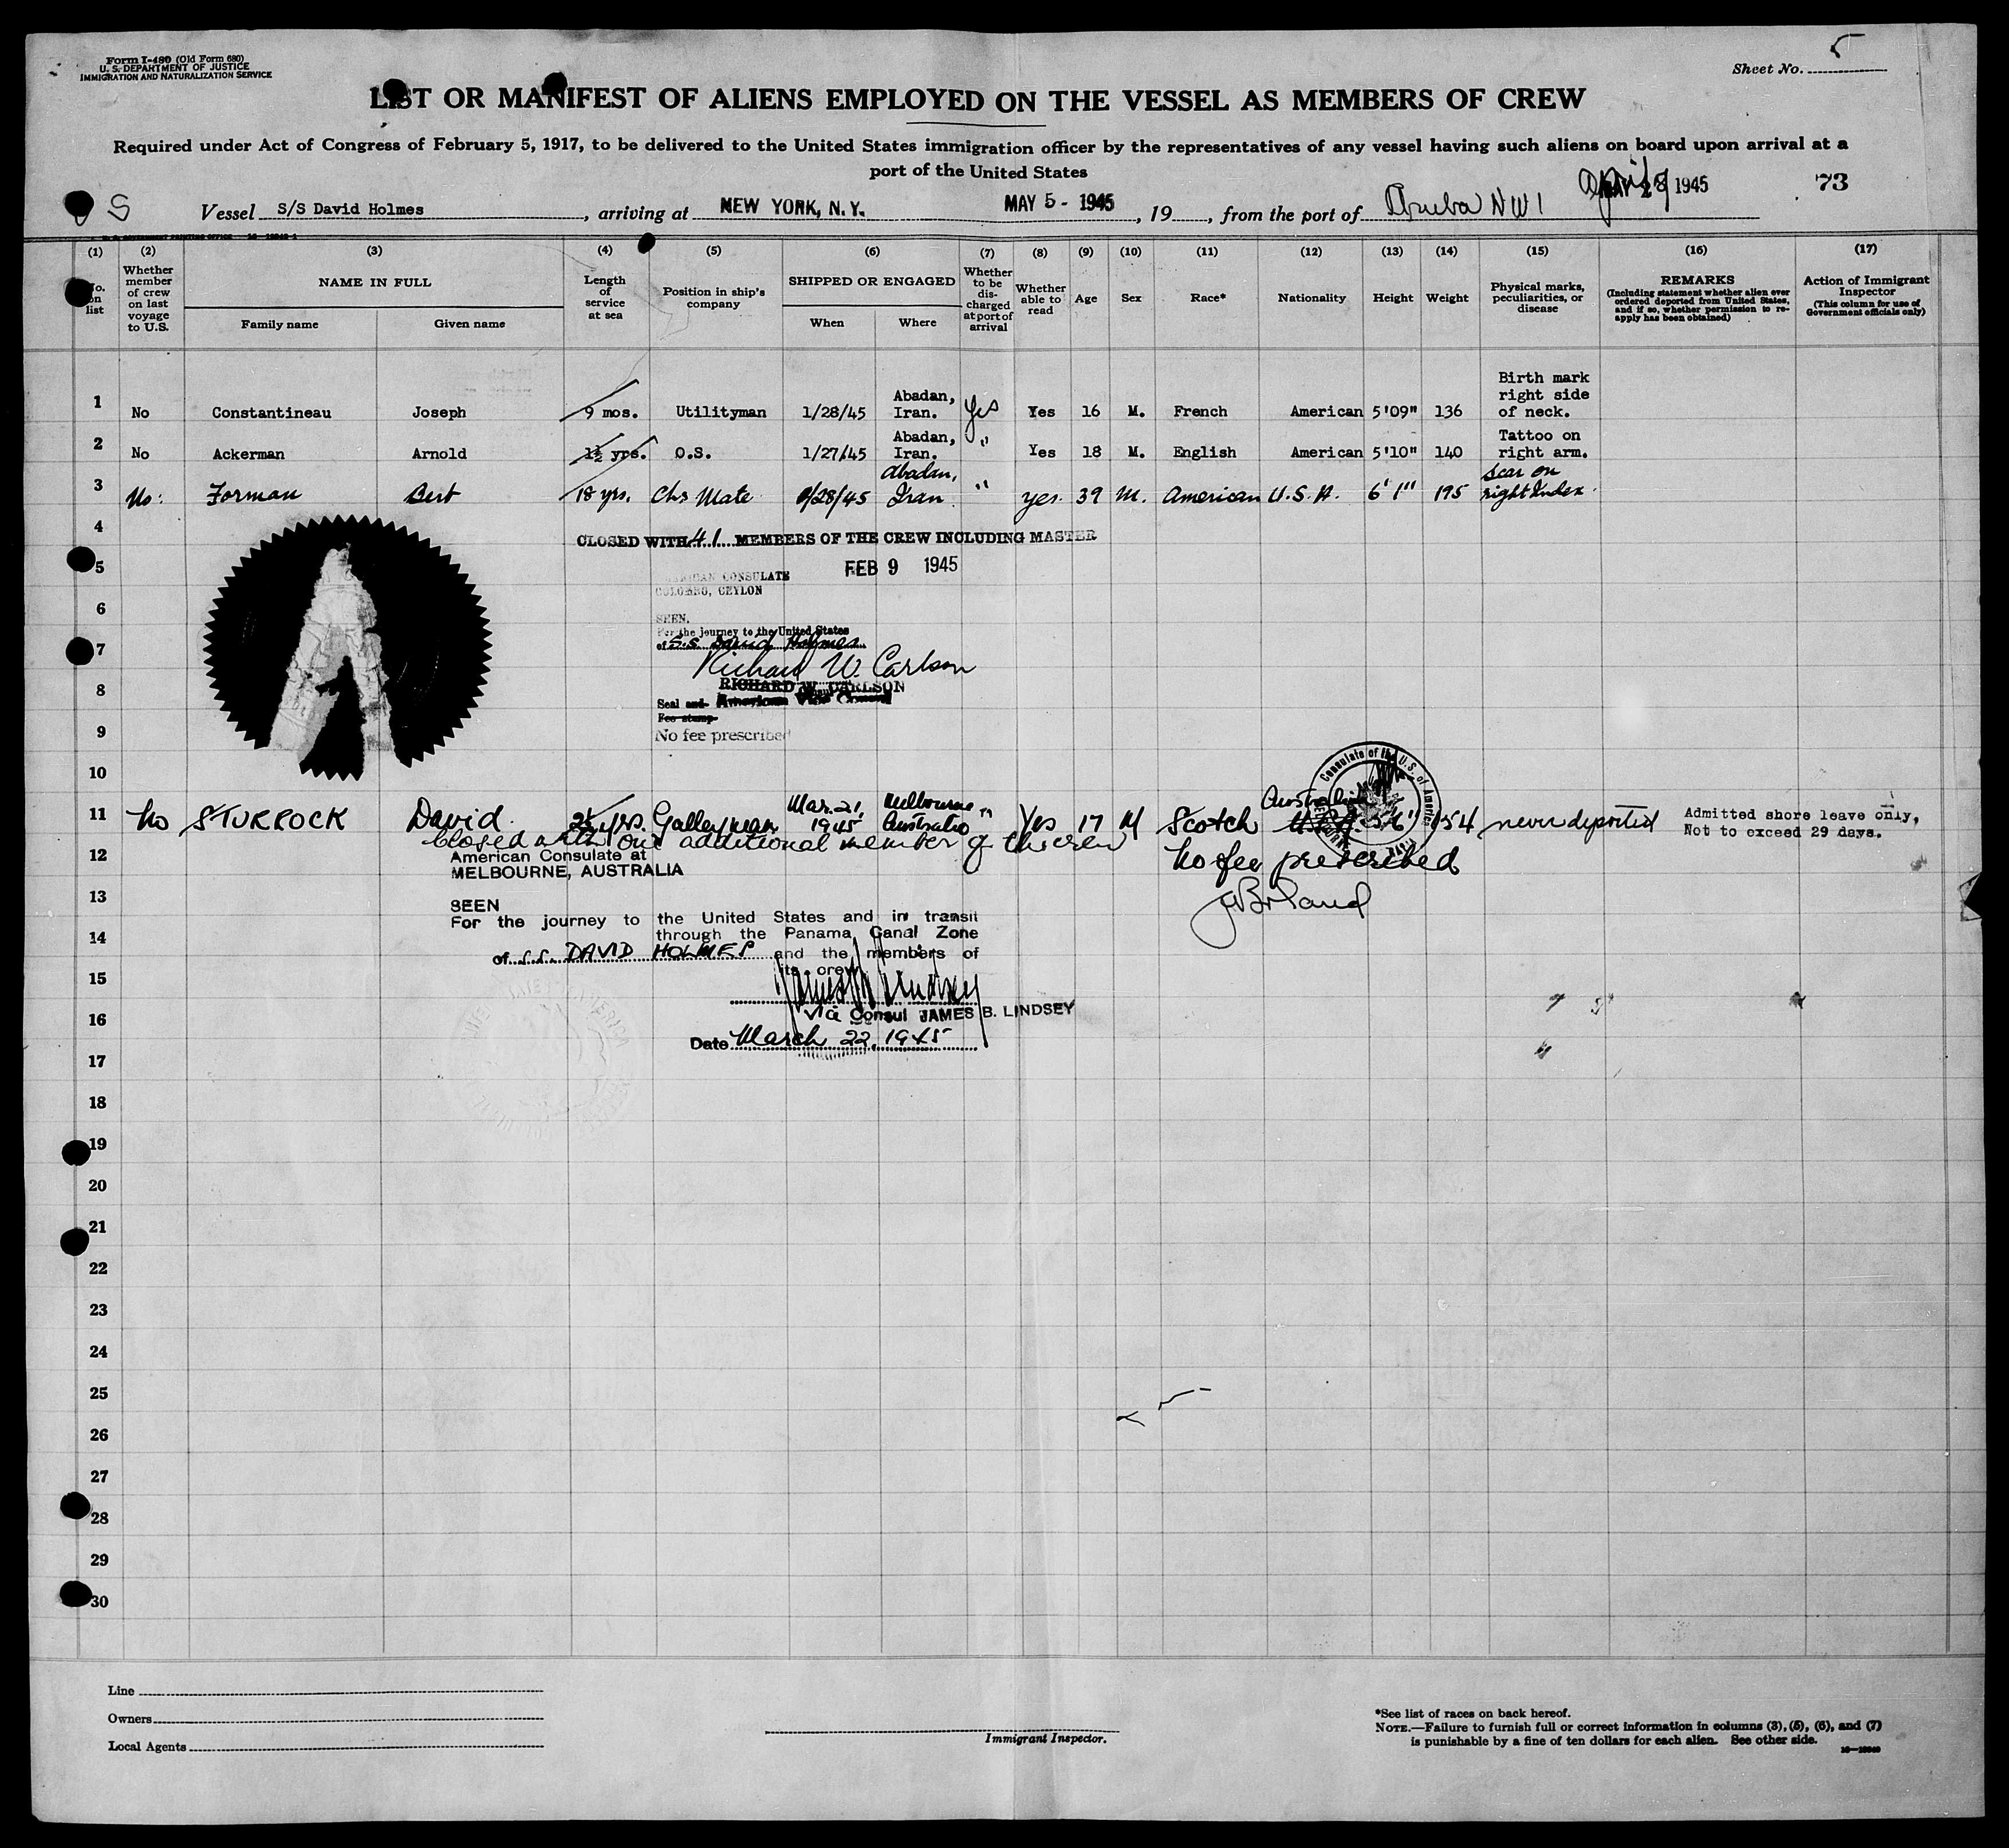 Form I-480 (Old Form 680)
U. S. DEPARTMENT OF JUSTICE
IMMIGRATION AND NATURALIZATION SERVICE
5
Sheet No.
LIST OR MANIFEST OF ALIENS EMPLOYED ON THE VESSEL AS MEMBERS OF CREW
Required under Act of Congress of February 5, 1917, to be delivered to the United States immigration officer by the representatives of any vessel having such aliens on board upon arrival at a
port of the United States
Vessel S/S David Holmes, arriving at NEW YORK, N. Y. MAY 5 - 1945, 19, from the port of Aruba NWI April 28 1945 73
(1) (2) (3) (4) (5) (6) (7) (8) (9) (10) (11) (12) (13) (14) (15) (16) (17)
No. on list
Whether member of crew on last voyage to U.S.
NAME IN FULL
Family name
Given name
Length of service at sea
Position in ship's company
SHIPPED OR ENGAGED
When
Where
Whether to be discharged at port of arrival
Whether able to read
Age
Sex
Race*
Nationality
Height
Weight
Physical marks, peculiarities, or disease
REMARKS
(Including statement whether alien ever ordered deported from United States, and if so, whether permission to re-apply has been obtained)
Action of Immigrant Inspector
(This column for use of Government officials only)
1 No Constantineau Joseph 9 mos. Utilityman 1/28/45 Abadan, Iran. Yes Yes 16 M. French American 5'09" 136 Birth mark right side of neck.
2 No Ackerman Arnold 1½ yrs. O.S. 1/27/45 Abadan, Iran. " Yes 18 M. English American 5'10" 140 Tattoo on right arm.
3 No: Forman Bert 18 yrs. Chs Mate 1/28/45 Abadan, Iran. " yes. 39 M. American U.S.A. 6'1" 195 Scar on right Index.
4
CLOSED WITH 41 MEMBERS OF THE CREW INCLUDING MASTER
FEB 9 1945
5
AMERICAN CONSULATE
COLOMBO, CEYLON
6
SEEN.
For the journey to the United States
of S.S. David Holmes
7
Richard W. Carlson
8
RICHARD W. CARLSON
Seal and American Vice Consul
Fee stamp
9
No fee prescribed
10
Consulate of the U.S. of America
11 No STURROCK David. yrs. Galleyman Mar. 21, 1945 Melbourne Australia " Yes 17 M Scotch Australian 5'6" 154 never deported Admitted shore leave only,
Not to exceed 29 days.
Closed with one additional member of the crew
12
American Consulate at
MELBOURNE, AUSTRALIA
No fee prescribed
13
SEEN
For the journey to the United States and in transit
14
through the Panama Canal Zone
of S.S. DAVID HOLMES and the members of
15
its crew
16
Vice Consul JAMES B. LINDSEY
Date March 22, 1945
17
18
19
20
21
22
23
24
25
26
27
28
29
30
Line
Owners
Local Agents
Immigrant Inspector.
*See list of races on back hereof.
NOTE.—Failure to furnish full or correct information in columns (3), (5), (6), and (7)
is punishable by a fine of ten dollars for each alien. See other side.